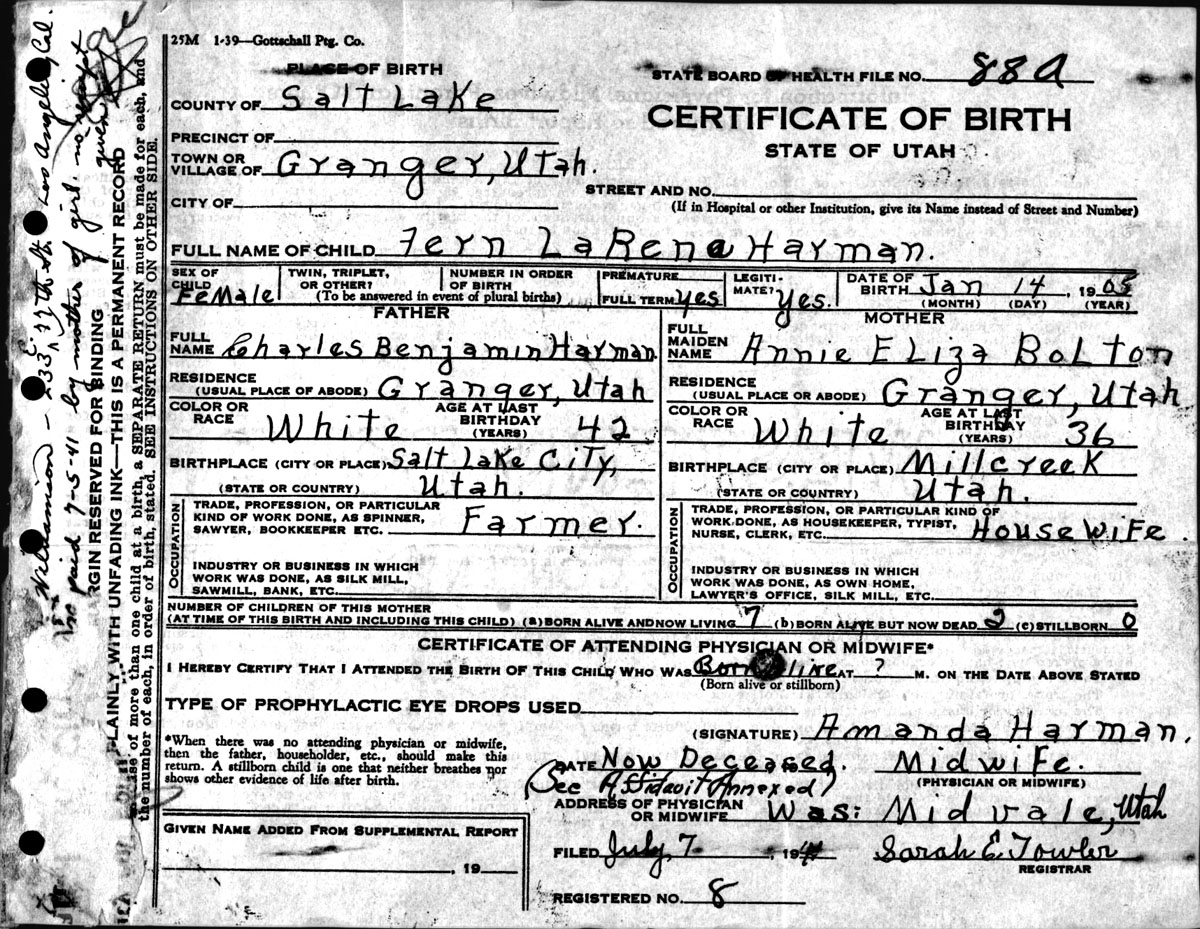 25M 1-39—Gottschall Ptg. Co.
PLACE OF BIRTH
STATE BOARD OF HEALTH FILE NO. 88a
COUNTY OF Salt Lake
CERTIFICATE OF BIRTH
PRECINCT OF
STATE OF UTAH
TOWN OR VILLAGE OF Granger, Utah.
STREET AND NO.
CITY OF
(If in Hospital or other Institution, give its Name instead of Street and Number)
FULL NAME OF CHILD Fern LaRena Harman.
SEX OF CHILD Female
TWIN, TRIPLET, OR OTHER?
NUMBER IN ORDER OF BIRTH
(To be answered in event of plural births)
PREMATURE
FULL TERM yes
LEGITIMATE? yes.
DATE OF BIRTH Jan 14, 1905
(MONTH) (DAY) (YEAR)
FATHER
FULL NAME Charles Benjamin Harman
RESIDENCE (USUAL PLACE OF ABODE) Granger, Utah
COLOR OR RACE White
AGE AT LAST BIRTHDAY (YEARS) 42
BIRTHPLACE (CITY OR PLACE) Salt Lake City,
(STATE OR COUNTRY) Utah.
OCCUPATION
TRADE, PROFESSION, OR PARTICULAR
KIND OF WORK DONE, AS SPINNER,
SAWYER, BOOKKEEPER ETC. Farmer.
INDUSTRY OR BUSINESS IN WHICH
WORK WAS DONE, AS SILK MILL,
SAWMILL, BANK, ETC.
MOTHER
FULL MAIDEN NAME Annie Eliza Bolton
RESIDENCE (USUAL PLACE OR ABODE) Granger, Utah
COLOR OR RACE White
AGE AT LAST BIRTHDAY (YEARS) 36
BIRTHPLACE (CITY OR PLACE) Millcreek
(STATE OR COUNTRY) Utah.
OCCUPATION
TRADE, PROFESSION, OR PARTICULAR KIND OF
WORK DONE, AS HOUSEKEEPER, TYPIST,
NURSE, CLERK, ETC. Housewife.
INDUSTRY OR BUSINESS IN WHICH
WORK WAS DONE, AS OWN HOME,
LAWYER'S OFFICE, SILK MILL, ETC.
NUMBER OF CHILDREN OF THIS MOTHER
(AT TIME OF THIS BIRTH AND INCLUDING THIS CHILD) (a) BORN ALIVE AND NOW LIVING 7 (b) BORN ALIVE BUT NOW DEAD 2 (c) STILLBORN 0
CERTIFICATE OF ATTENDING PHYSICIAN OR MIDWIFE*
I HEREBY CERTIFY THAT I ATTENDED THE BIRTH OF THIS CHILD WHO WAS Born alive AT ? M. ON THE DATE ABOVE STATED
(Born alive or stillborn)
TYPE OF PROPHYLACTIC EYE DROPS USED
*When there was no attending physician or midwife,
then the father, householder, etc., should make this
return. A stillborn child is one that neither breathes nor
shows other evidence of life after birth.
(SIGNATURE) Amanda Harman.
DATE Now Deceased. Midwife.
(PHYSICIAN OR MIDWIFE)
(See Affidavit Annexed)
ADDRESS OF PHYSICIAN OR MIDWIFE Was: Midvale, Utah
GIVEN NAME ADDED FROM SUPPLEMENTAL REPORT
, 19
FILED July, 7, 1941 Sarah E. Towler
REGISTRAR
REGISTERED NO. 8
Williamson - 233 E. 37th St. Los Angeles, Cal.
paid 7-5-41 by mother of girl. no receipt given
RGIN RESERVED FOR BINDING
PLAINLY, WITH UNFADING INK—THIS IS A PERMANENT RECORD
ase of more than one child at a birth, a SEPARATE RETURN must be made for each, and
the number of each, in order of birth, stated. SEE INSTRUCTIONS ON OTHER SIDE.